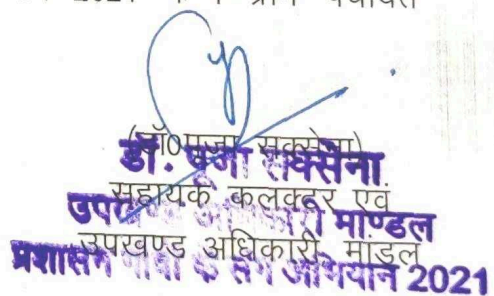 2021
(डॉ0पूजा सक्सेना)
डॉ. पूजा सक्सेना
सहायक कलक्टर एवं
उपखण्ड अधिकारी माण्डल
उपखण्ड अधिकारी, मांडल
प्रशासन गांवों के संग अभियान 2021